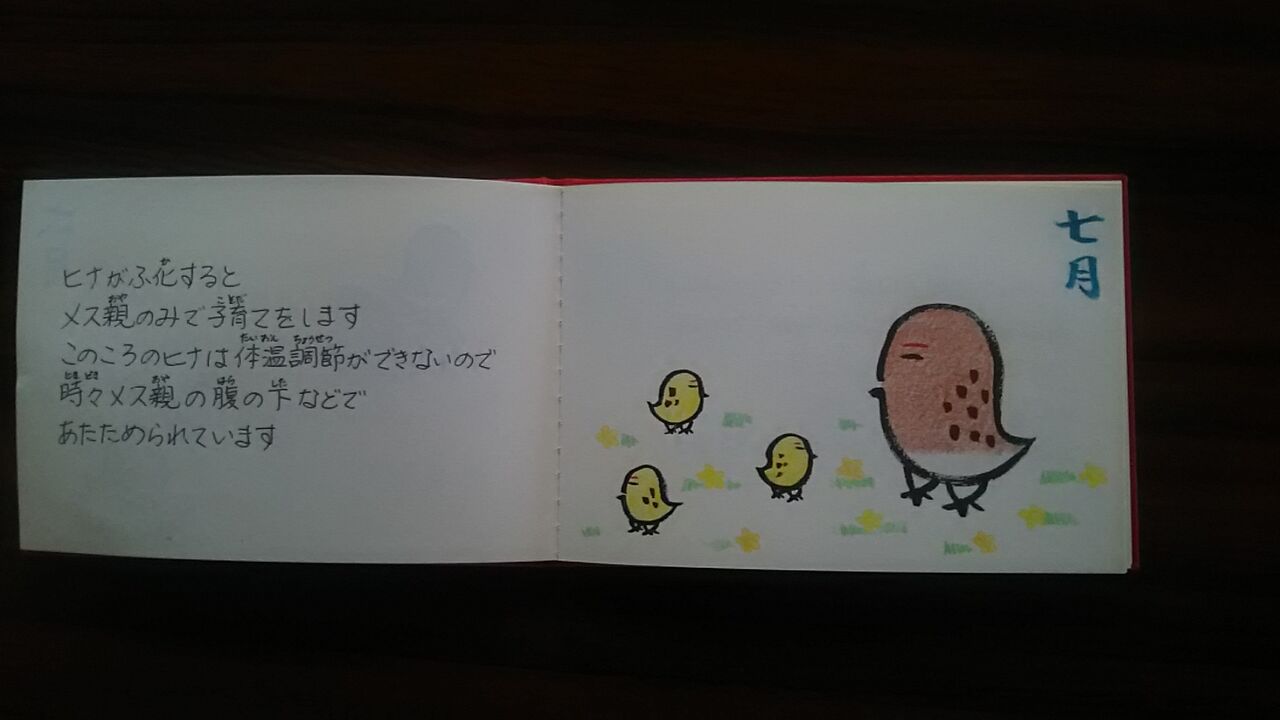 ヒナがふ花すると
メス親のみで子育てをします
このころのヒナは体温調節ができないので
時々メス親の腹の下などで
あたためられています
七月